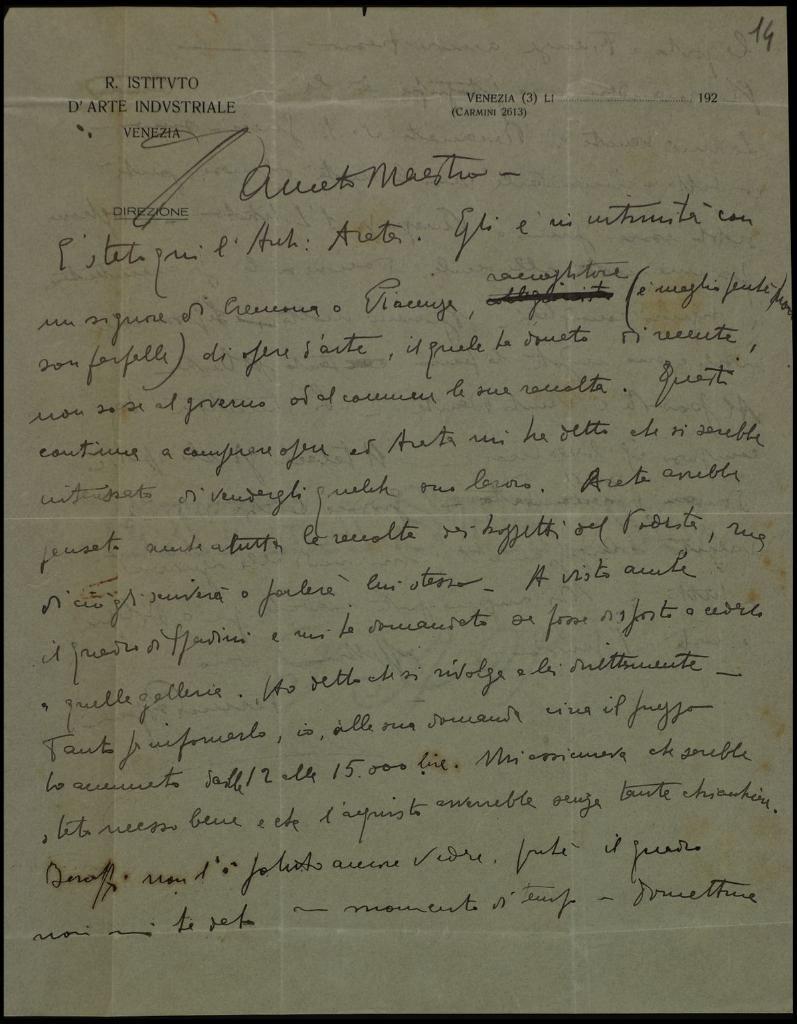 14
R. ISTITVTO
D'ARTE INDVSTRIALE
VENEZIA
VENEZIA (3) LI 192
(CARMINI 2613)
DIREZIONE
Amato Maestro –
E' stato qui l'Arch: Arata. Egli è in intimità con
un signore di Cremona o Piacenza, raccoglitore (è meglio perché non
son farfalle) di opere d'arte, il quale ha donato di recente,
non so se al governo od al comune la sua raccolta. Questi
continua a comperare opere ed Arata mi ha detto che si sarebbe
interessato di vendergli qualche suo lavoro. Arata avrebbe
pensato anche a tutta la raccolta dei bozzetti del Podestà, ma
di ciò gli scriverà o parlerà lui stesso – A visto anche
il quadro di Spadini e mi ha domandato se fosse disposto a cederlo
a quella galleria. Ho detto che si rivolga a lei direttamente –
Tanto per informarlo, io, alla sua domanda circa il prezzo
ho accennato dalle 12 alle 15.000 lire. Mi assicurava che sarebbe
stato messo bene e che l'acquisto avverrebbe senza tante chiacchiere.
non l'ò potuto ancora vedere, perché il quadro
non mi ha dato – momento di tempo –